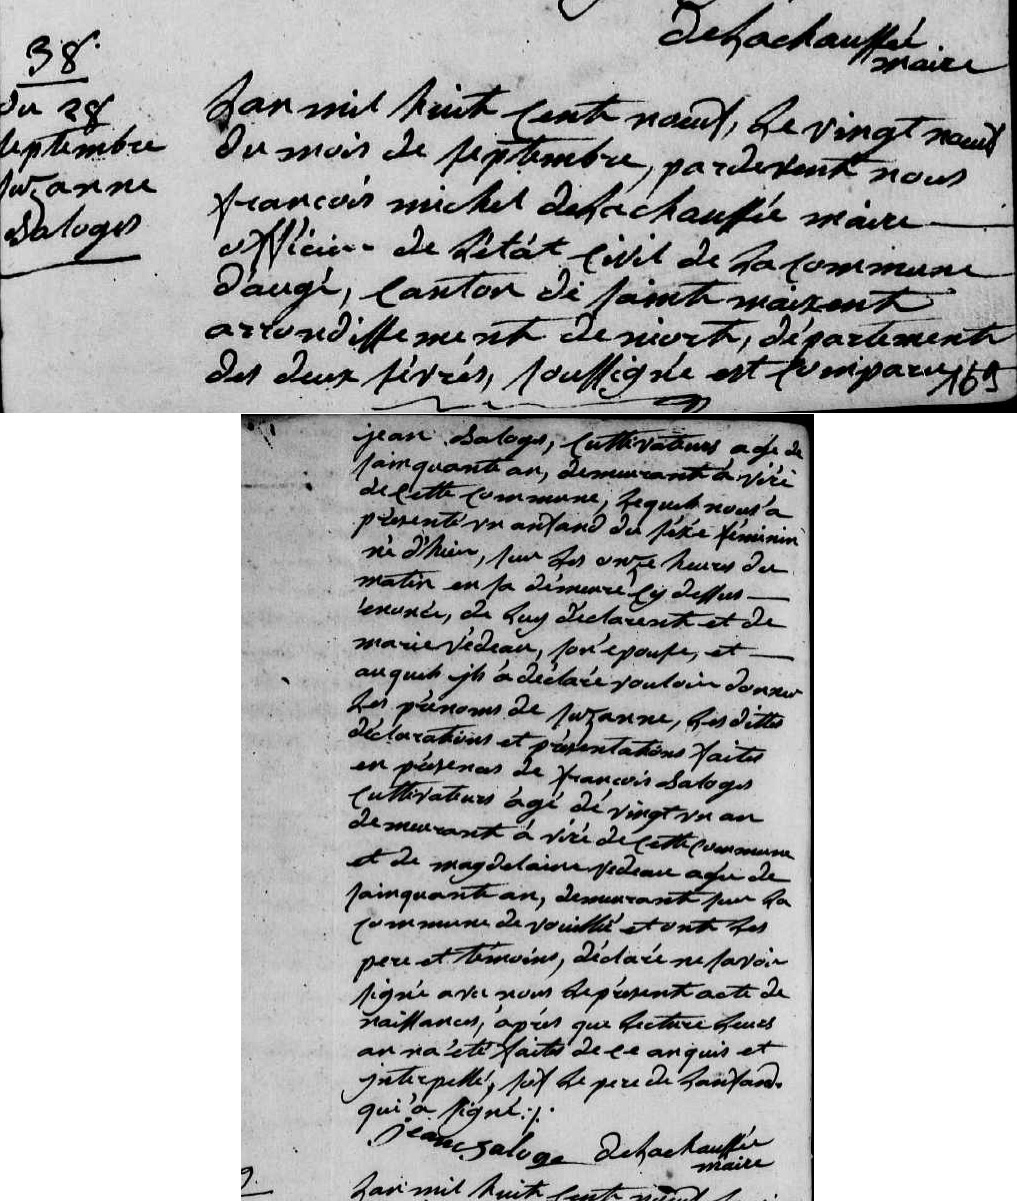 DeLachauffée
maire
38
du 28
septembre
suzanne
Saloges
Lan mil huit cent noeuf, Le vingt noeuf
du mois de septembre, pardevent nous
françois michel DeLachauffée maire
officier de L'état civil de La commune
d'augé, canton de saint maixent
arrondissement de niort, département
des deux sévrés, soussigné est comparu
169
jean Saloges, cultivateurs agé de
sainquante an, demeurant à viré
de cette commune, Lequel nous a
présenté un anfand du séxe féminin
né d'hier, sur les onze heures du
matin en sa démeure cy dessus
énoncé, de Luy déclarent et de
marie védeau, son épouse, et
auquel jl a déclaré vouloir donner
Les prénoms de suzanne, Les dittes
déclarations et présentations faites
en présences de françois Saloges
cultivateurs agé dé vingt un an
demeurant à viré de cette commune
et de magdelaine védeau agée de
sainquante an, demeurant sur La
commune de vouillé et ont Les
pere et témoins, déclaré ne savoir
signé avec nous Le présent acte de
naissances, aprés que Lecture Leurs
an na été faites de ce anquis et
jnterpellé, sof Le pere de Lanfand
qui a signé ./.
jean Saloge DeLachauffée
maire
Lan mil huit cent noeuf